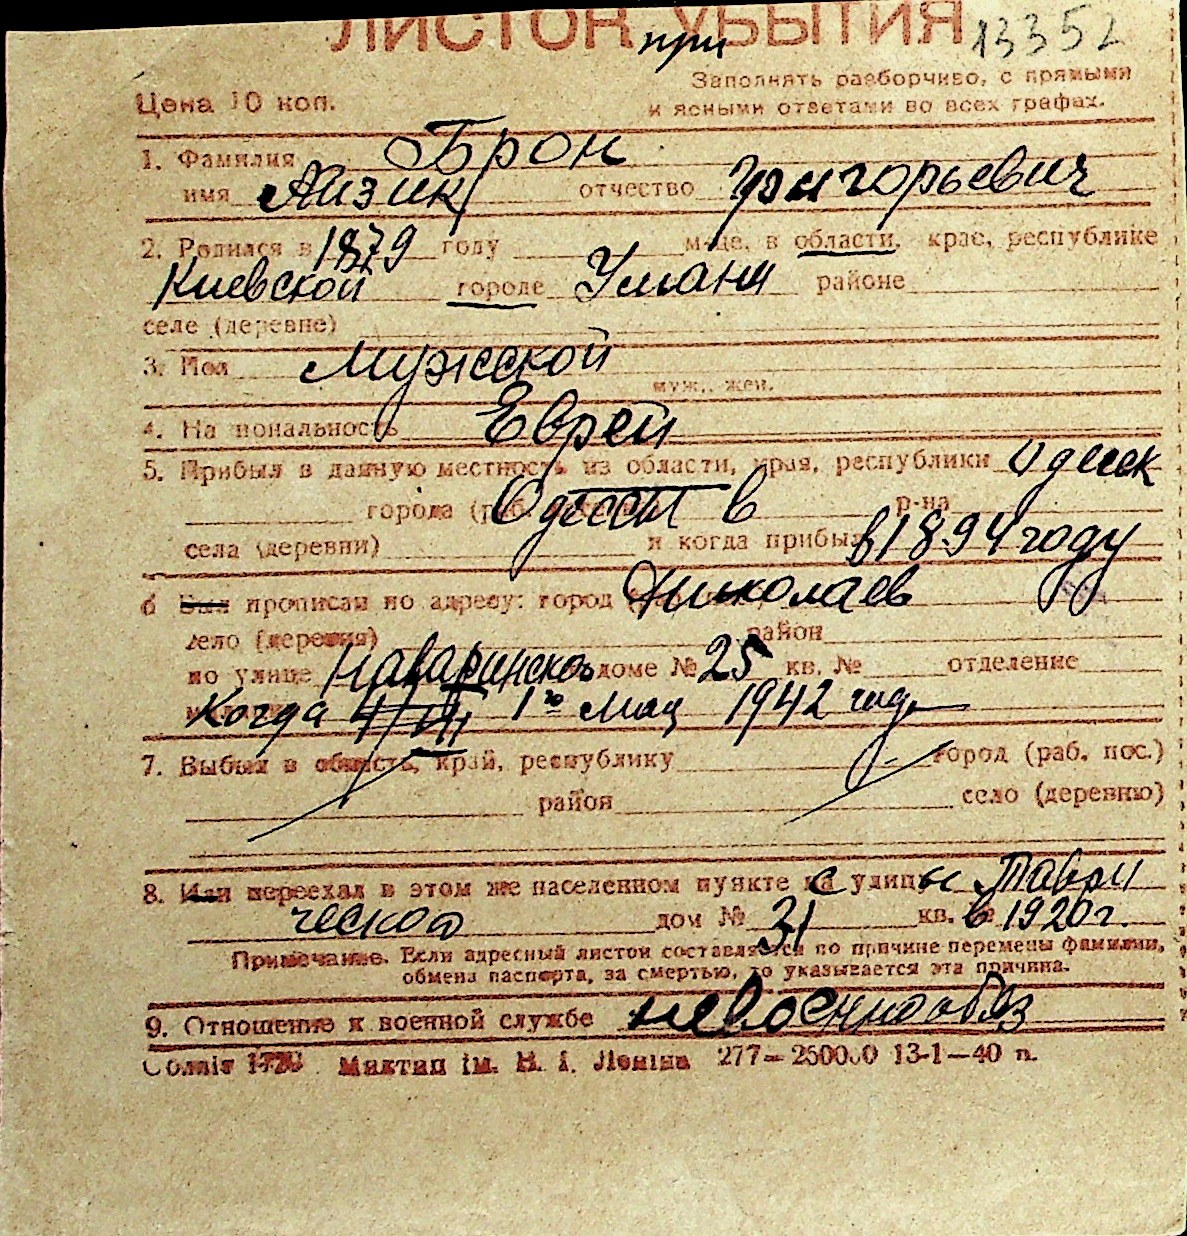 ЛИСТОК при УБЫТИЯ 13352
Заполнять разборчиво, с прямыми
Цена 10 коп.
и ясными ответами во всех графах.
1. Фамилия Брон
имя Айзик отчество Григорьевич
2. Родился в 1879 году м-це, в области, крае, республике
Киевской городе Умани районе
селе (деревне)
3. Пол Мужской
муж., жен.
4. Национальность Еврей
5. Прибыл в данную местность из области, края, республики Одесск
города (раб. Одесса в р-на
села (деревни) и когда прибыл в 1894 году
6 Был прописан по адресу: город Николаев
село (деревня) район
по улице Наваринской доме № 25 кв. № отделение
Когда 1го мая 1942 года
7. Выбыл в область, край, республику город (раб. пос.)
район село (деревню)
8. Или переехал в этом же населенном пункте с улицы Таври
ческой дом № 31 кв. в 1920 г.
Примечание. Если адресный листок составляется по причине перемены фамилии,
обмена паспорта, за смертью, то указывается эта причина.
9. Отношение к военной службе невоеннообяз
277—250000 13-1—40 п.